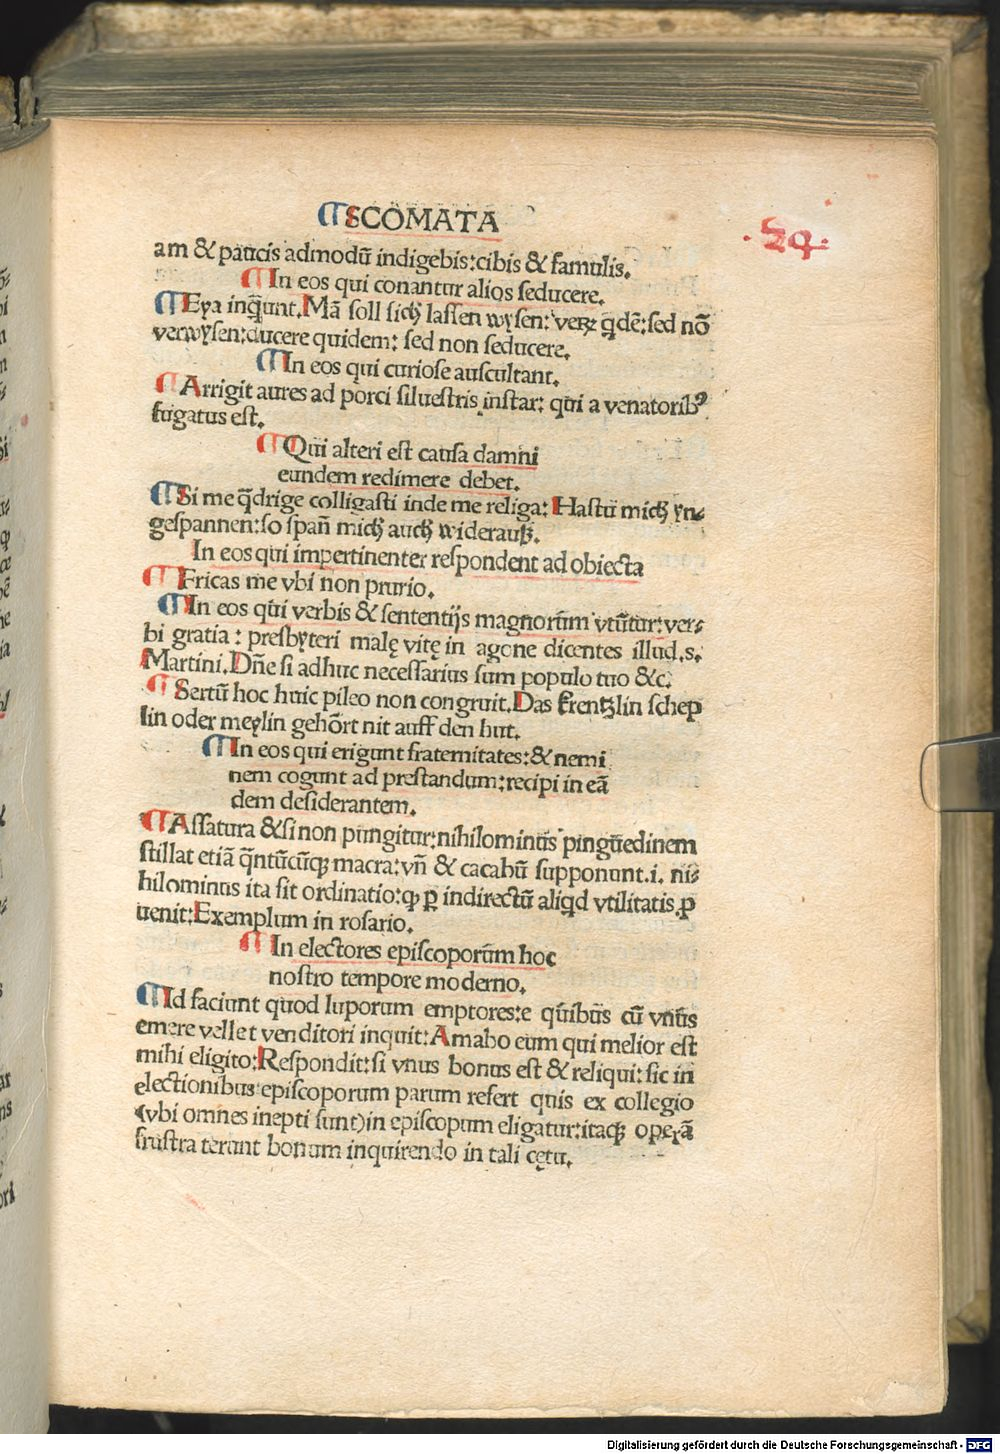 SCOMATA
.24.
am & paucis admodū indigebis: cibis & famulis.
In eos qui conantur alios seducere.
Eya inq̄unt. Mā soll sich lassen wysen: verꝫ q̄dē: sed nō
verwysen: ducere quidem: sed non seducere.
In eos qui curiose auscultant.
Arrigit aures ad porci siluestris instar: qui a venatoribꝰ
fugatus est.
Qui alteri est causa damni
eundem redimere debet.
Si me q̄drige colligasti inde me religa: Hastu mich yn⸗
gespannen: so span̄ mich auch widerauß.
In eos qui impertinenter respondent ad obiecta
Fricas me vbi non prurio.
In eos qui verbis & sententijs magnorūm vtūtur: ver⸗
bi gratia: presbyteri malę vitę in agone dicentes illud. s.
Martini. Dn̄e si adhuc necessarius sum populo tuo &c.
Sertū hoc huic pileo non congruit. Das krentzlin schep
lin oder meylin gehōrt nit auff den hut.
In eos qui erigunt fraternitates: & nemi
nem cogunt ad prestandum: recipi in eā
dem desiderantem.
Assatura & si non pungitur: nihilominus pinguedinem
stillat etiā q̄ntūcūqꝫ macra: vn̄ & cacabū supponunt. i. ni⸗
hilominus ita fit ordinatio: ꝙ ꝑ indirectū aliqd vtilitatis ꝓ
uenit: Exemplum in rosario.
In electores episcoporūm hoc
nostro tempore moderno.
Id faciunt quod luporum emptores: e quibus cū vnus
emere vellet venditori inquit: Amabo eum qui melior est
mihi eligito: Respondit: si vnus bonus est & reliqui: sic in
electionibus episcoporum parum refert quis ex collegio
(vbi omnes inepti sunt) in episcopum eligatur: itaqꝫ operā
frustra terunt bonum inquirendo in tali cętu.
Digitalisierung gefördert durch die Deutsche Forschungsgemeinschaft - DFG